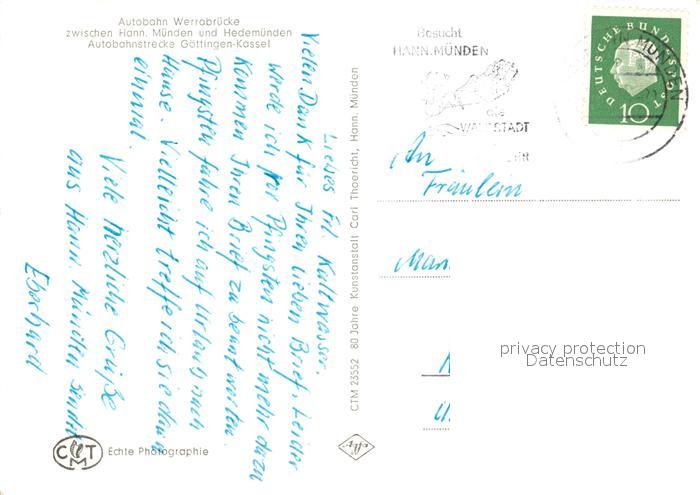 Autobahn Werrabrücke
zwischen Hann. Münden und Hedemünden
Autobahnstrecke Göttingen-Kassel
Liebes Frl. Kaltwasser.
Vielen Dank für Ihren lieben Brief. Leider
werde ich vor Pfingsten nicht mehr dazu
kommen Ihren Brief zu beantworten.
Pfingsten fahre ich auf Urlaub nach
Hause. Vielleicht treffe ich sie dann
einmal.
Viele herzliche Grüße
aus Hann. Münden sendet
Eberhard
CTM
Echte Photographie
CTM 23552 80 Jahre Kunstanstalt Carl Thoericht, Hann. Münden
Besucht
HANN. MÜNDEN
die
WALDSTADT
DEUTSCHE BUNDESPOST
10
MÜNDEN
An
Fräulein
privacy protection
Datenschutz